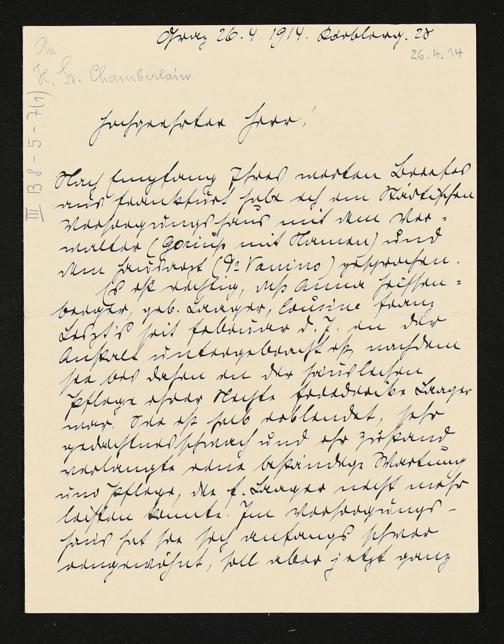 Graz 26.4.1914. Körblerg. 28
26.4.14
An
H. St. Chamberlain
III B 8-5-7(1)
Hochgeehrter Herr!
Nach Empfang Ihres werten Briefes
aus Frankfurt habe ich im Städtischen
Versorgungshaus mit dem Ver=
walter (mit Namen) und
dem Hausarzt (Dr Vanino) gesprochen.
Es ist richtig, daß Anna
berger, geb. Laager, Cousine Franz
Liszt's seit Februar d. J. in der
Anstalt untergebracht ist, nachdem
sie bis dahin in der häuslichen
Pflege ihrer Nichte Friederike Laager
war. Sie ist halb erblindet, sehr
gedächtnisschwach und ihr Zustand
verlangte eine beständige Wartung
und Pflege, die F. Laager nicht mehr
leisten konnte. Im Versorgungs-
haus hat sie sich anfangs schwer
eingewöhnt, soll aber jetzt ganz